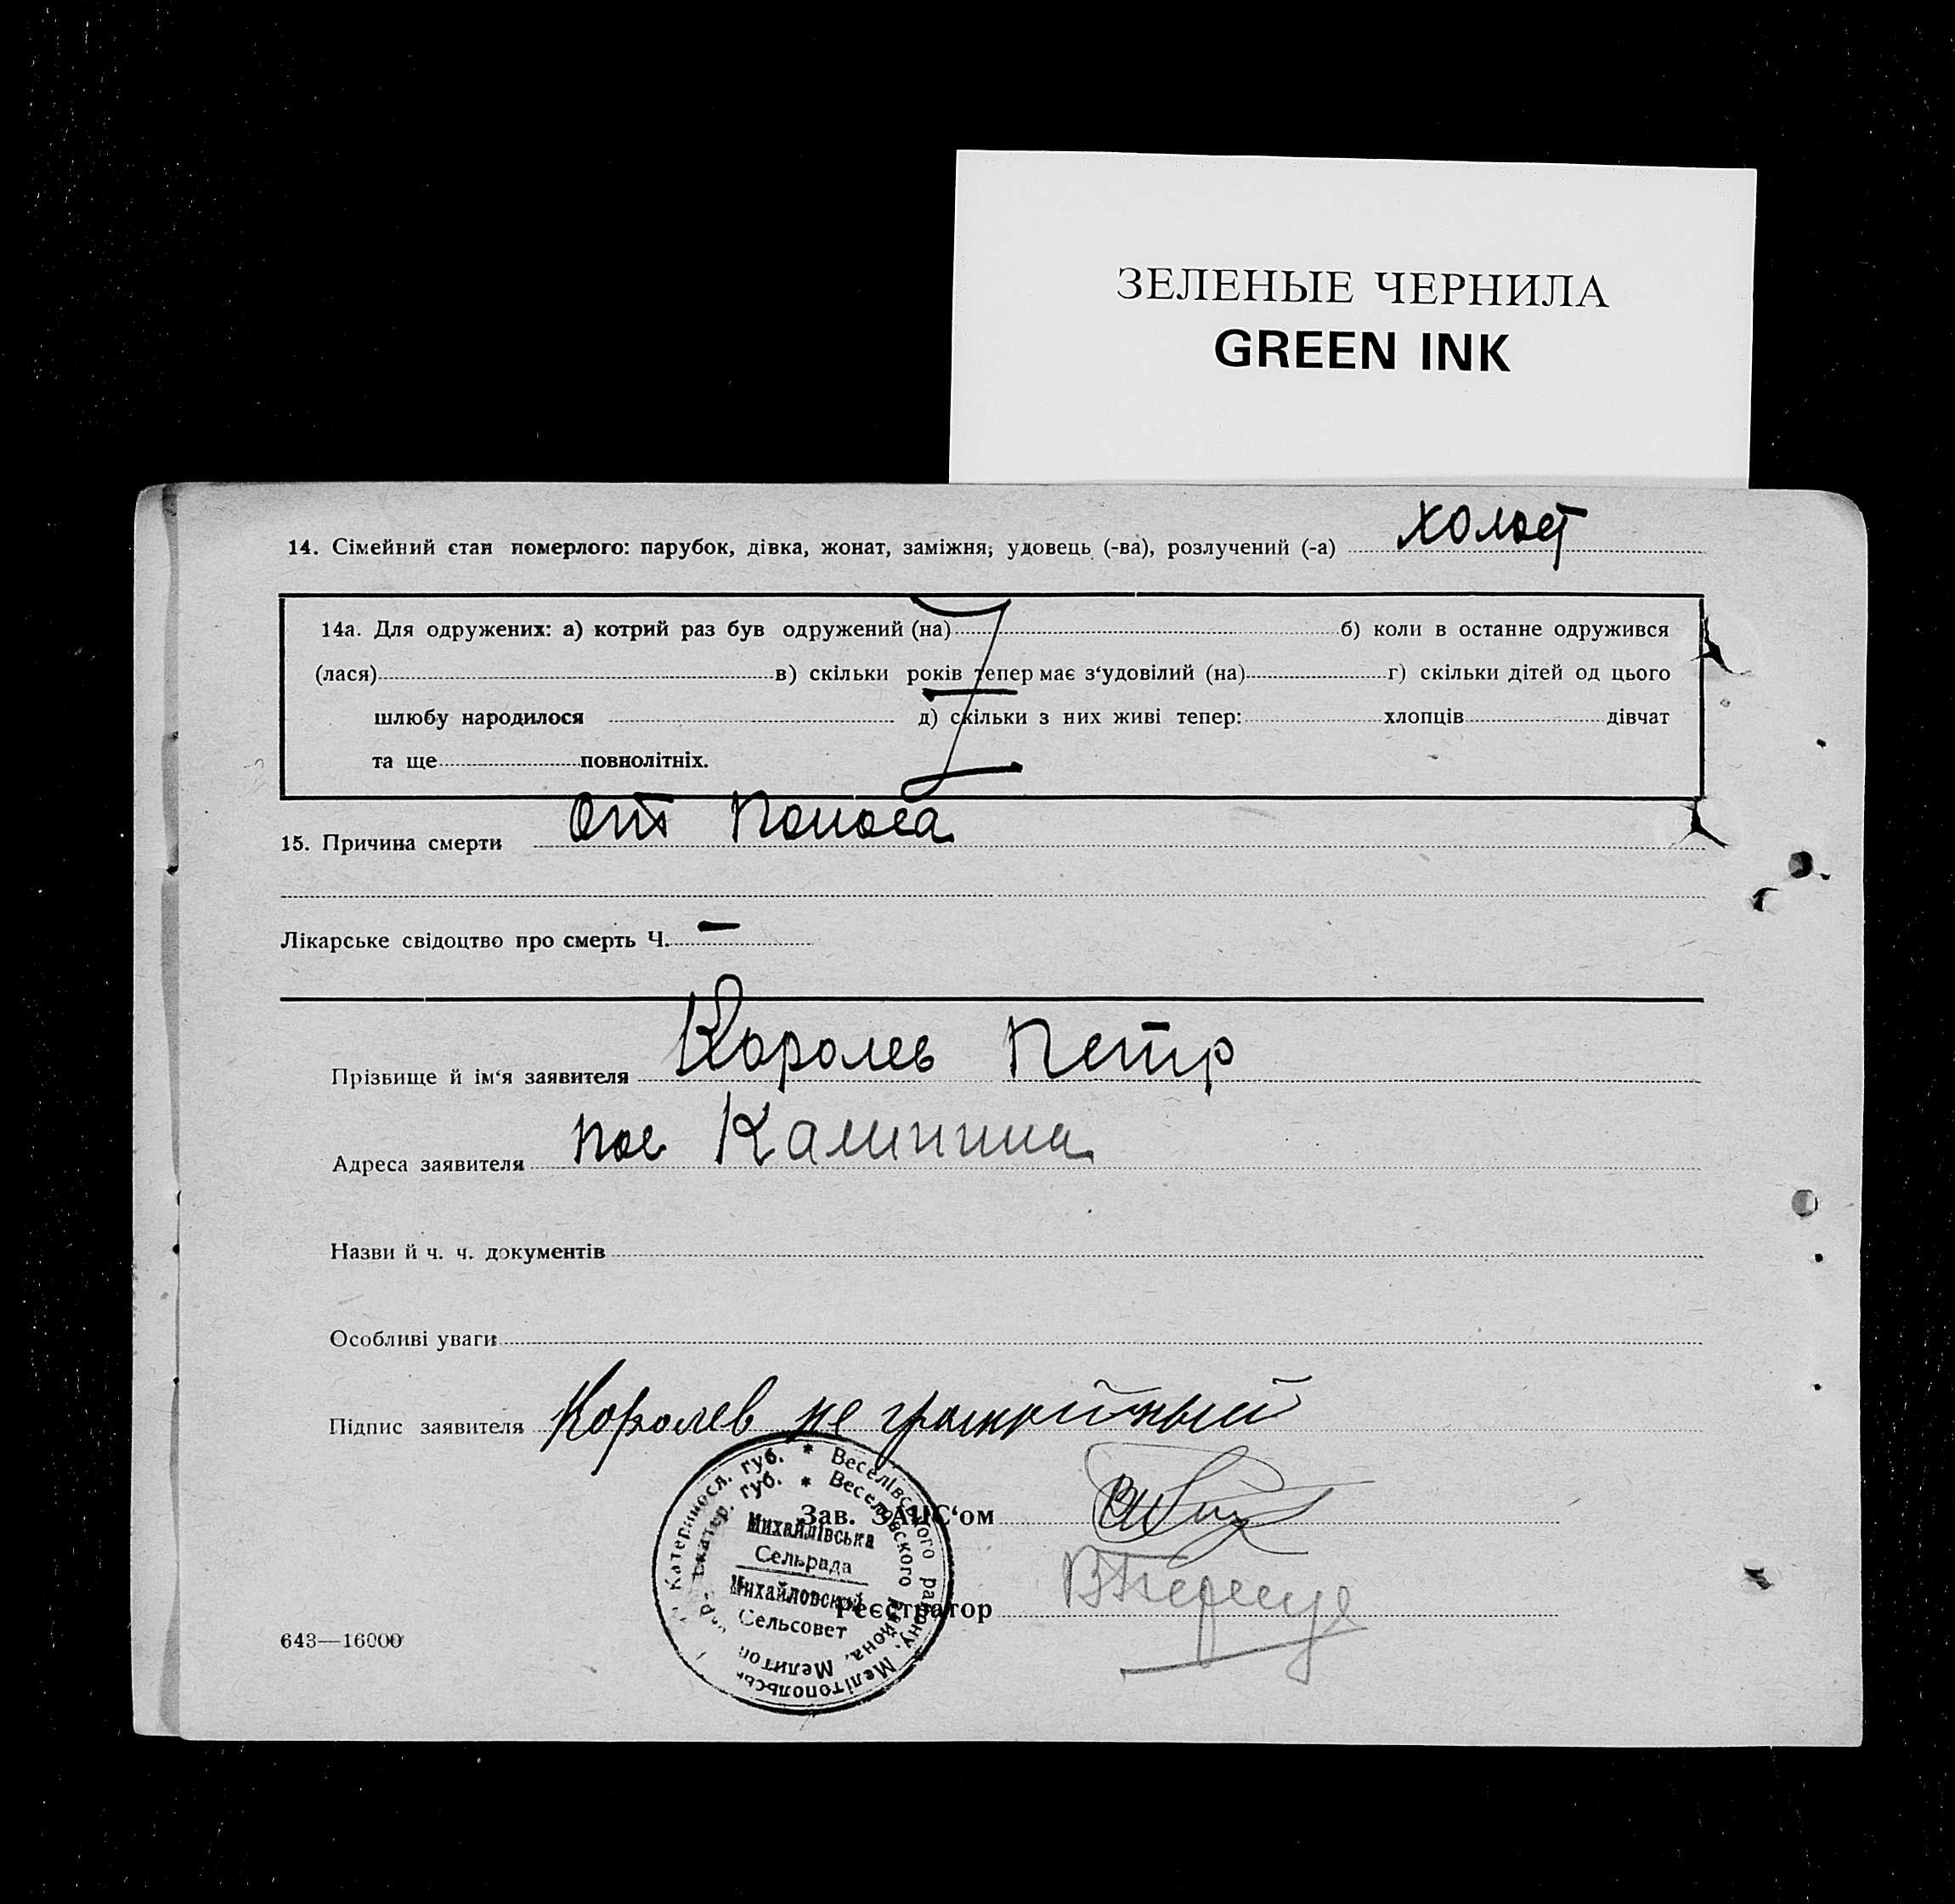 ЗЕЛЕНЫЕ ЧЕРНИЛА
GREEN INK
14. Сімейний стан померлого: парубок, дівка, жонат, заміжня; удовець (-ва), розлучений (-а) холост
14а. Для одружених: а) котрий раз був одружений (на) б) коли в останне одружився
(лася) в) скільки років тепер має з‘удовілий (на) г) скільки дітей од цього
шлюбу народилося д) скільки з них живі тепер: хлопців дівчат
та ще повнолітніх.
15. Причина смерти От поноса
Лікарське свідоцтво про смерть Ч. —
Прізвище й ім‘я заявителя Королев Петр
Адреса заявителя пос Калинина
Назви й ч. ч. документів
Особливі уваги
Підпис заявителя Королев не грамотный
Зав. ЗАПС‘ом
Реєстратор
Катериносл. губ. * Веселівського району, Мелітопольськ
губ. * Веселовского района, Мелитоп
Михайлівська
Сельрада
Михайловский
Сельсовет
643—16000